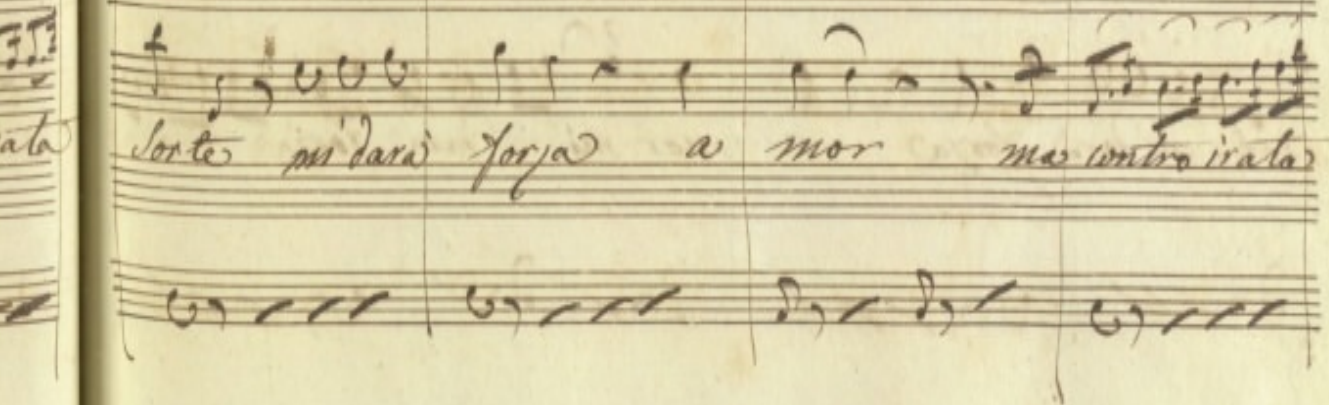 ata sorte mi darà forza a mor ma contro irata